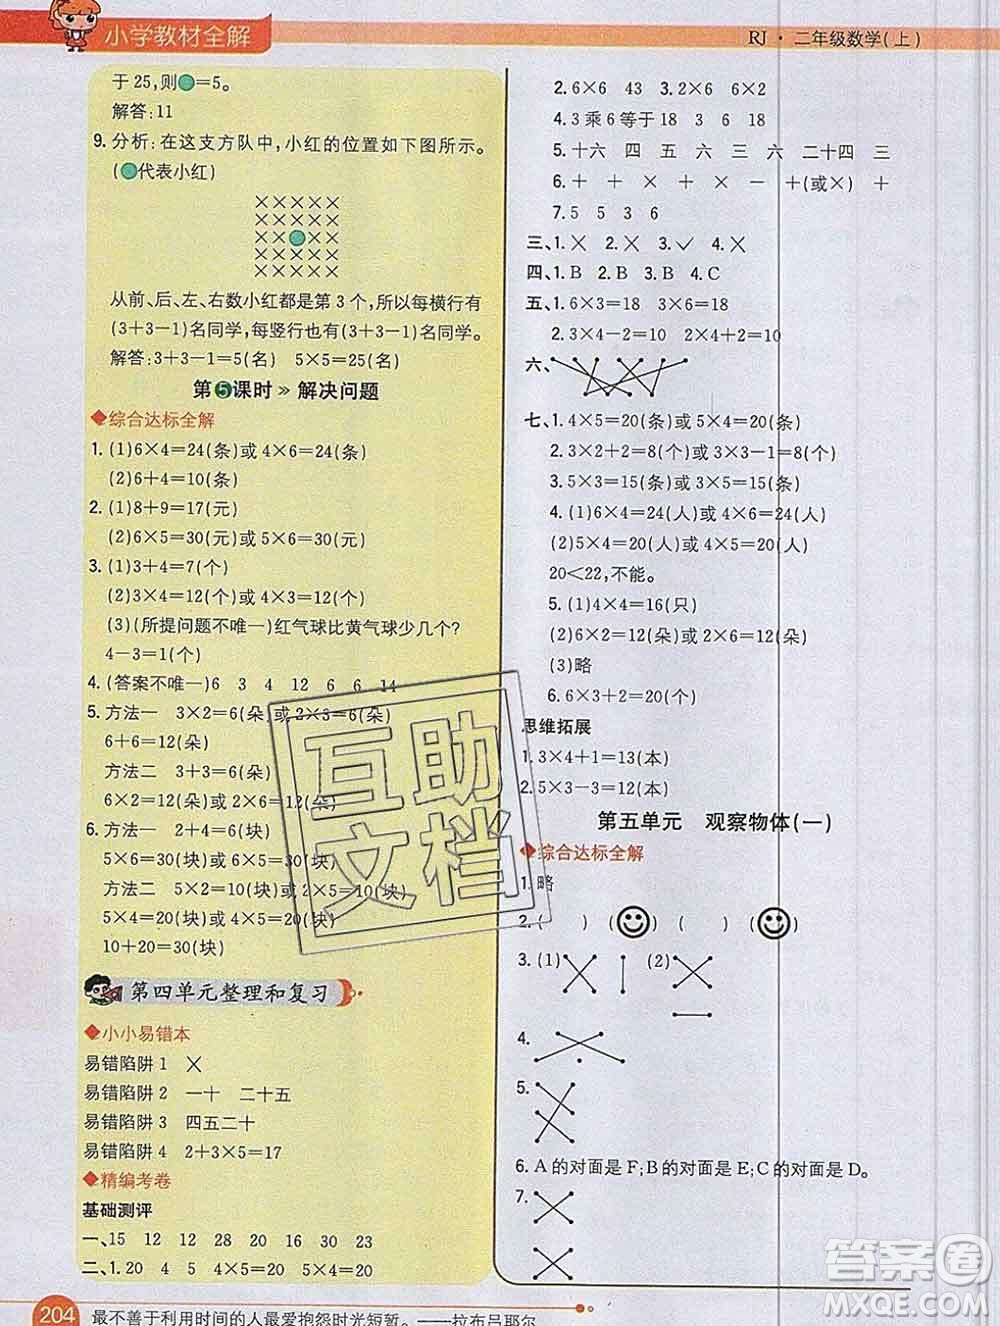 小学教材全解
RJ · 二年级数学(上)
于 25,则●=5。
解答:11
9. 分析:在这支方队中,小红的位置如下图所示。
(●代表小红)
×××××
×××××
××●××
×××××
×××××
从前、后、左、右数小红都是第 3 个,所以每横行有
(3+3−1)名同学,每竖行也有(3+3−1)名同学。
解答:3+3−1=5(名) 5×5=25(名)
第5课时 » 解决问题
◆综合达标全解
1. (1)6×4=24(条)或 4×6=24(条)
(2)6+4=10(条)
2. (1)8+9=17(元)
(2)6×5=30(元)或 5×6=30(元)
3. (1)3+4=7(个)
(2)3×4=12(个)或 4×3=12(个)
(3)(所提问题不唯一)红气球比黄气球少几个?
4−3=1(个)
4. (答案不唯一)6 3 4 12 6 6 14
5. 方法一 3×2=6(朵)或 2×3=6(朵)
6+6=12(朵)
方法二 3+3=6(朵)
6×2=12(朵)或 2×6=12(朵)
6. 方法一 2+4=6(块)
5×6=30(块)或 6×5=30(块)
方法二 5×2=10(块)或 2×5=10(块)
5×4=20(块)或 4×5=20(块)
10+20=30(块)
第四单元整理和复习
◆小小易错本
易错陷阱 1 ×
易错陷阱 2 一十 二十五
易错陷阱 3 四五二十
易错陷阱 4 2+3×5=17
◆精编考卷
基础测评
一、15 12 12 28 20 30 23
二、1. 20 4 5 4×5=20 5×4=20
2. 6×6 43 3. 2×6 6×2
4. 3 乘 6 等于 18 3 6 18
5. 十六 四 五 六 三 六 二十四 三
6. + + × + × − +(或×) +
7. 5 5 3 6
三、1. × 2. × 3. ✓ 4. ×
四、1. B 2. B 3. B 4. C
五、1. 6×3=18 3×6=18
2. 3×4−2=10 2×4+2=10
六、
七、1. 4×5=20(条)或 5×4=20(条)
2. 3×2+2=8(个)或 3×3−1=8(个)
3. 5×3=15(条)或 3×5=15(条)
4. (1)6×4=24(人)或 4×6=24(人)
(2)5×4=20(人)或 4×5=20(人)
20<22,不能。
5. (1)4×4=16(只)
(2)6×2=12(朵)或 2×6=12(朵)
(3)略
6. 6×3+2=20(个)
思维拓展
1. 3×4+1=13(本)
2. 5×3−3=12(本)
第五单元 观察物体(一)
◆综合达标全解
1. 略
2. ( ) (☺) ( ) (☺)
3. (1) (2)
4.
5.
6. A 的对面是 F;B 的对面是 E;C 的对面是 D。
7.
204 最不善于利用时间的人最爱抱怨时光短暂。——拉布吕耶尔
互助
文档
答案圈
MXQE.COM